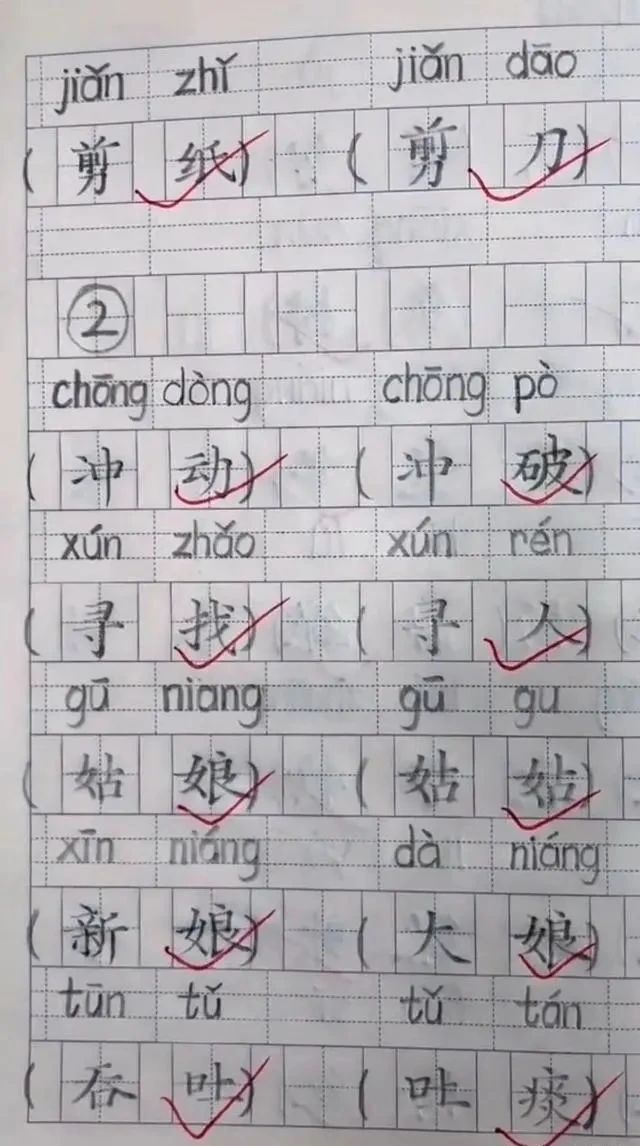 jiǎn zhǐ jiǎn dāo
(剪纸) (剪刀)
②
chōng dòng chōng pò
(冲动) (冲破)
xún zhǎo xún rén
(寻找) (寻人)
gū niang gū gu
(姑娘) (姑姑)
xīn niáng dà niáng
(新娘) (大娘)
tūn tǔ tǔ tán
(吞吐) (吐痰)